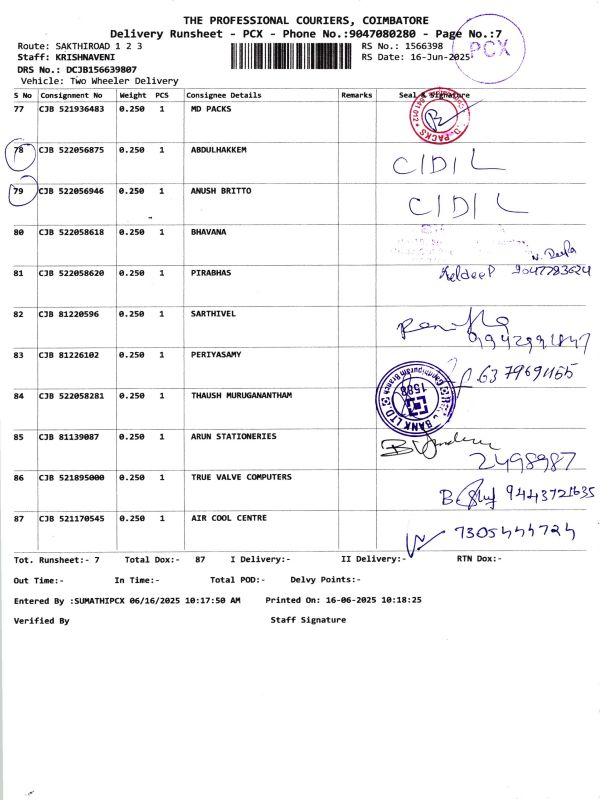 THE PROFESSIONAL COURIERS, COIMBATORE
Delivery Runsheet - PCX - Phone No.:9047080280 - Page No.:7
PCX
Route: SAKTHIROAD 1 2 3
RS No.: 1566398
Staff: KRISHNAVENI
RS Date: 16-Jun-2025
DRS No.: DCJB156639807
Vehicle: Two Wheeler Delivery
S No Consignment No Weight PCS Consignee Details Remarks Seal & Signature
77 CJB 521936483 0.250 1 MD PACKS
78 CJB 522056875 0.250 1 ABDULHAKKEM C/D/L
79 CJB 522056946 0.250 1 ANUSH BRITTO C/D/L
80 CJB 522058618 0.250 1 BHAVANA
81 CJB 522058620 0.250 1 PIRABHAS
82 CJB 81220596 0.250 1 SARTHIVEL
83 CJB 81226102 0.250 1 PERIYASAMY
84 CJB 522058281 0.250 1 THAUSH MURUGANANTHAM
85 CJB 81139087 0.250 1 ARUN STATIONERIES 2498987
86 CJB 521895000 0.250 1 TRUE VALVE COMPUTERS 9443721635
87 CJB 521170545 0.250 1 AIR COOL CENTRE
Tot. Runsheet:- 7 Total Dox:- 87 I Delivery:- II Delivery:- RTN Dox:-
Out Time:- In Time:- Total POD:- Delvy Points:-
Entered By :SUMATHIPCX 06/16/2025 10:17:50 AM Printed On: 16-06-2025 10:18:25
Verified By Staff Signature